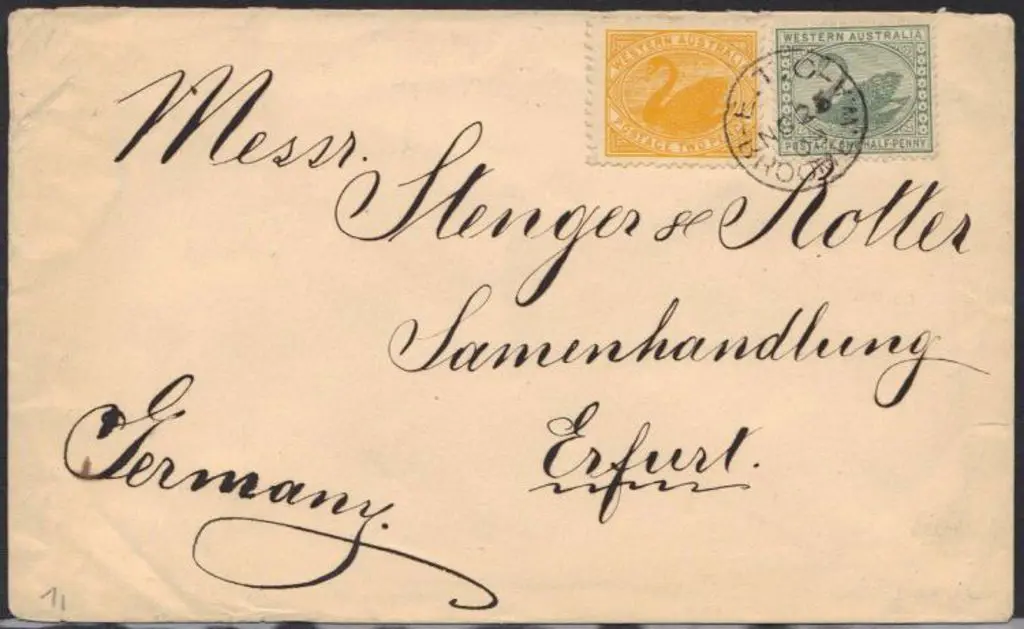 WESTERN AUSTRALIA
POSTAGE TWO
WESTERN AUSTRALIA
POSTAGE HALF-PENNY
Messr.
Stenger & Rotter
Samenhandlung
Erfurt.
Germany.